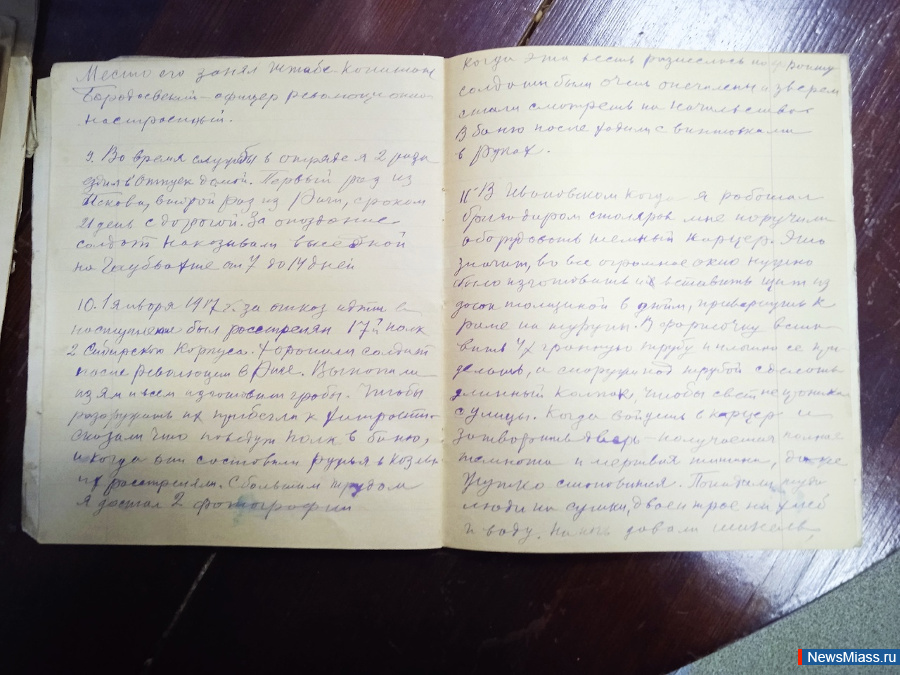 Место его занял штабс. Капитан
Бородаевский – офицер революционно
настроенный.
9. Во время службы в отряде я 2 раза
ездил в отпуск домой. Первый раз из
Пскова, второй раз из Риги, сроком
21 день с дорогой. За опоздание
солдат наказывали высёдкой
на Гауптвахте от 7 до 14 дней
10. 1 января 1917 г. за отказ идти в
наступление был расстрелян 17й полк
2 Сибирского Корпуса. Хоронили солдат
после Революции в Риге. Выкопали
из ям и всем изготовили гробы. Чтобы
разоружить их прибегли к хитрости
сказали что поведут полк в баню,
и когда они составили ружья в козлы
их расстреляли. С большим трудом
я достал 2 фотографии
Когда эта весть разнеслась по фронту
солдаты были очень опечалены и зверем
стали смотреть на начальство.
В баню после ходили с винтовками
в руках.
11. В Ивановском когда я работал
бригадиром столяров мне поручили
оборудовать темный карцер. Это
значит, во все огромное окно нужно
было изготовить и вставить щит из
досок толщиной в дюйм, привернуть к
раме на шурупы. В форточку вста-
вить 4х гранную трубу и плотно ее при-
делать, а снаружи над трубой сделать
длинный колпак, чтобы свет не проникал
с улицы. Когда войдешь в карцер и
затворишь дверь – получается полная
темнота и мертвая тишина, даже
жутко становится. Попадали туда
люди на сутки, двое и трое на хлеб
и воду. На ночь давали шинель,
NewsMiass.ru